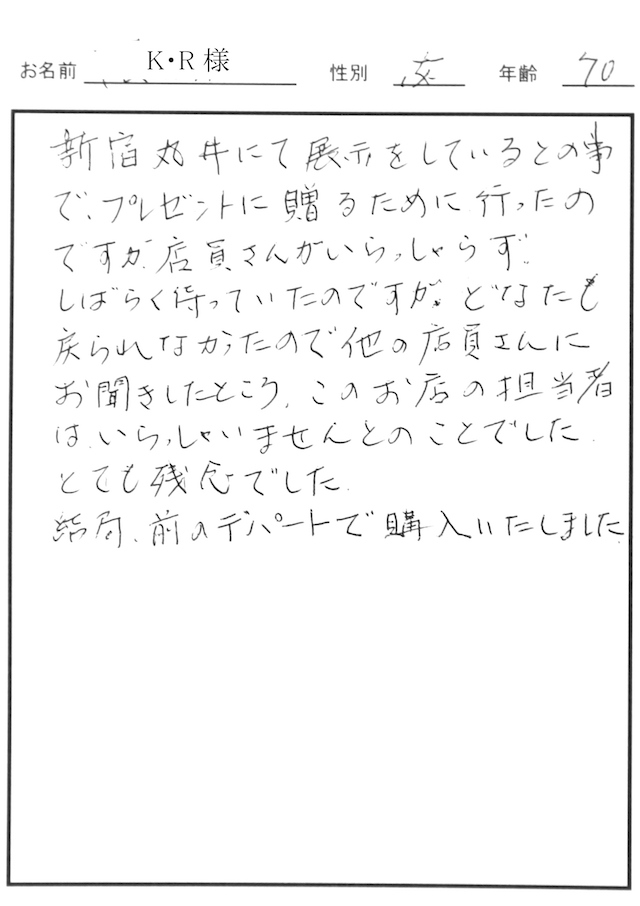 お名前 K・R 様 性別 女 年齢 70
新宿丸井にて展示をしているとの事
で、プレゼントに贈るために行ったの
ですが、店員さんがいらっしゃらず、
しばらく待っていたのですが、どなたも
戻られなかったので他の店員さんに
お聞きしたところ、このお店の担当者
は、いらっしゃいませんとのことでした。
とても残念でした。
結局、前のデパートで購入いたしました。